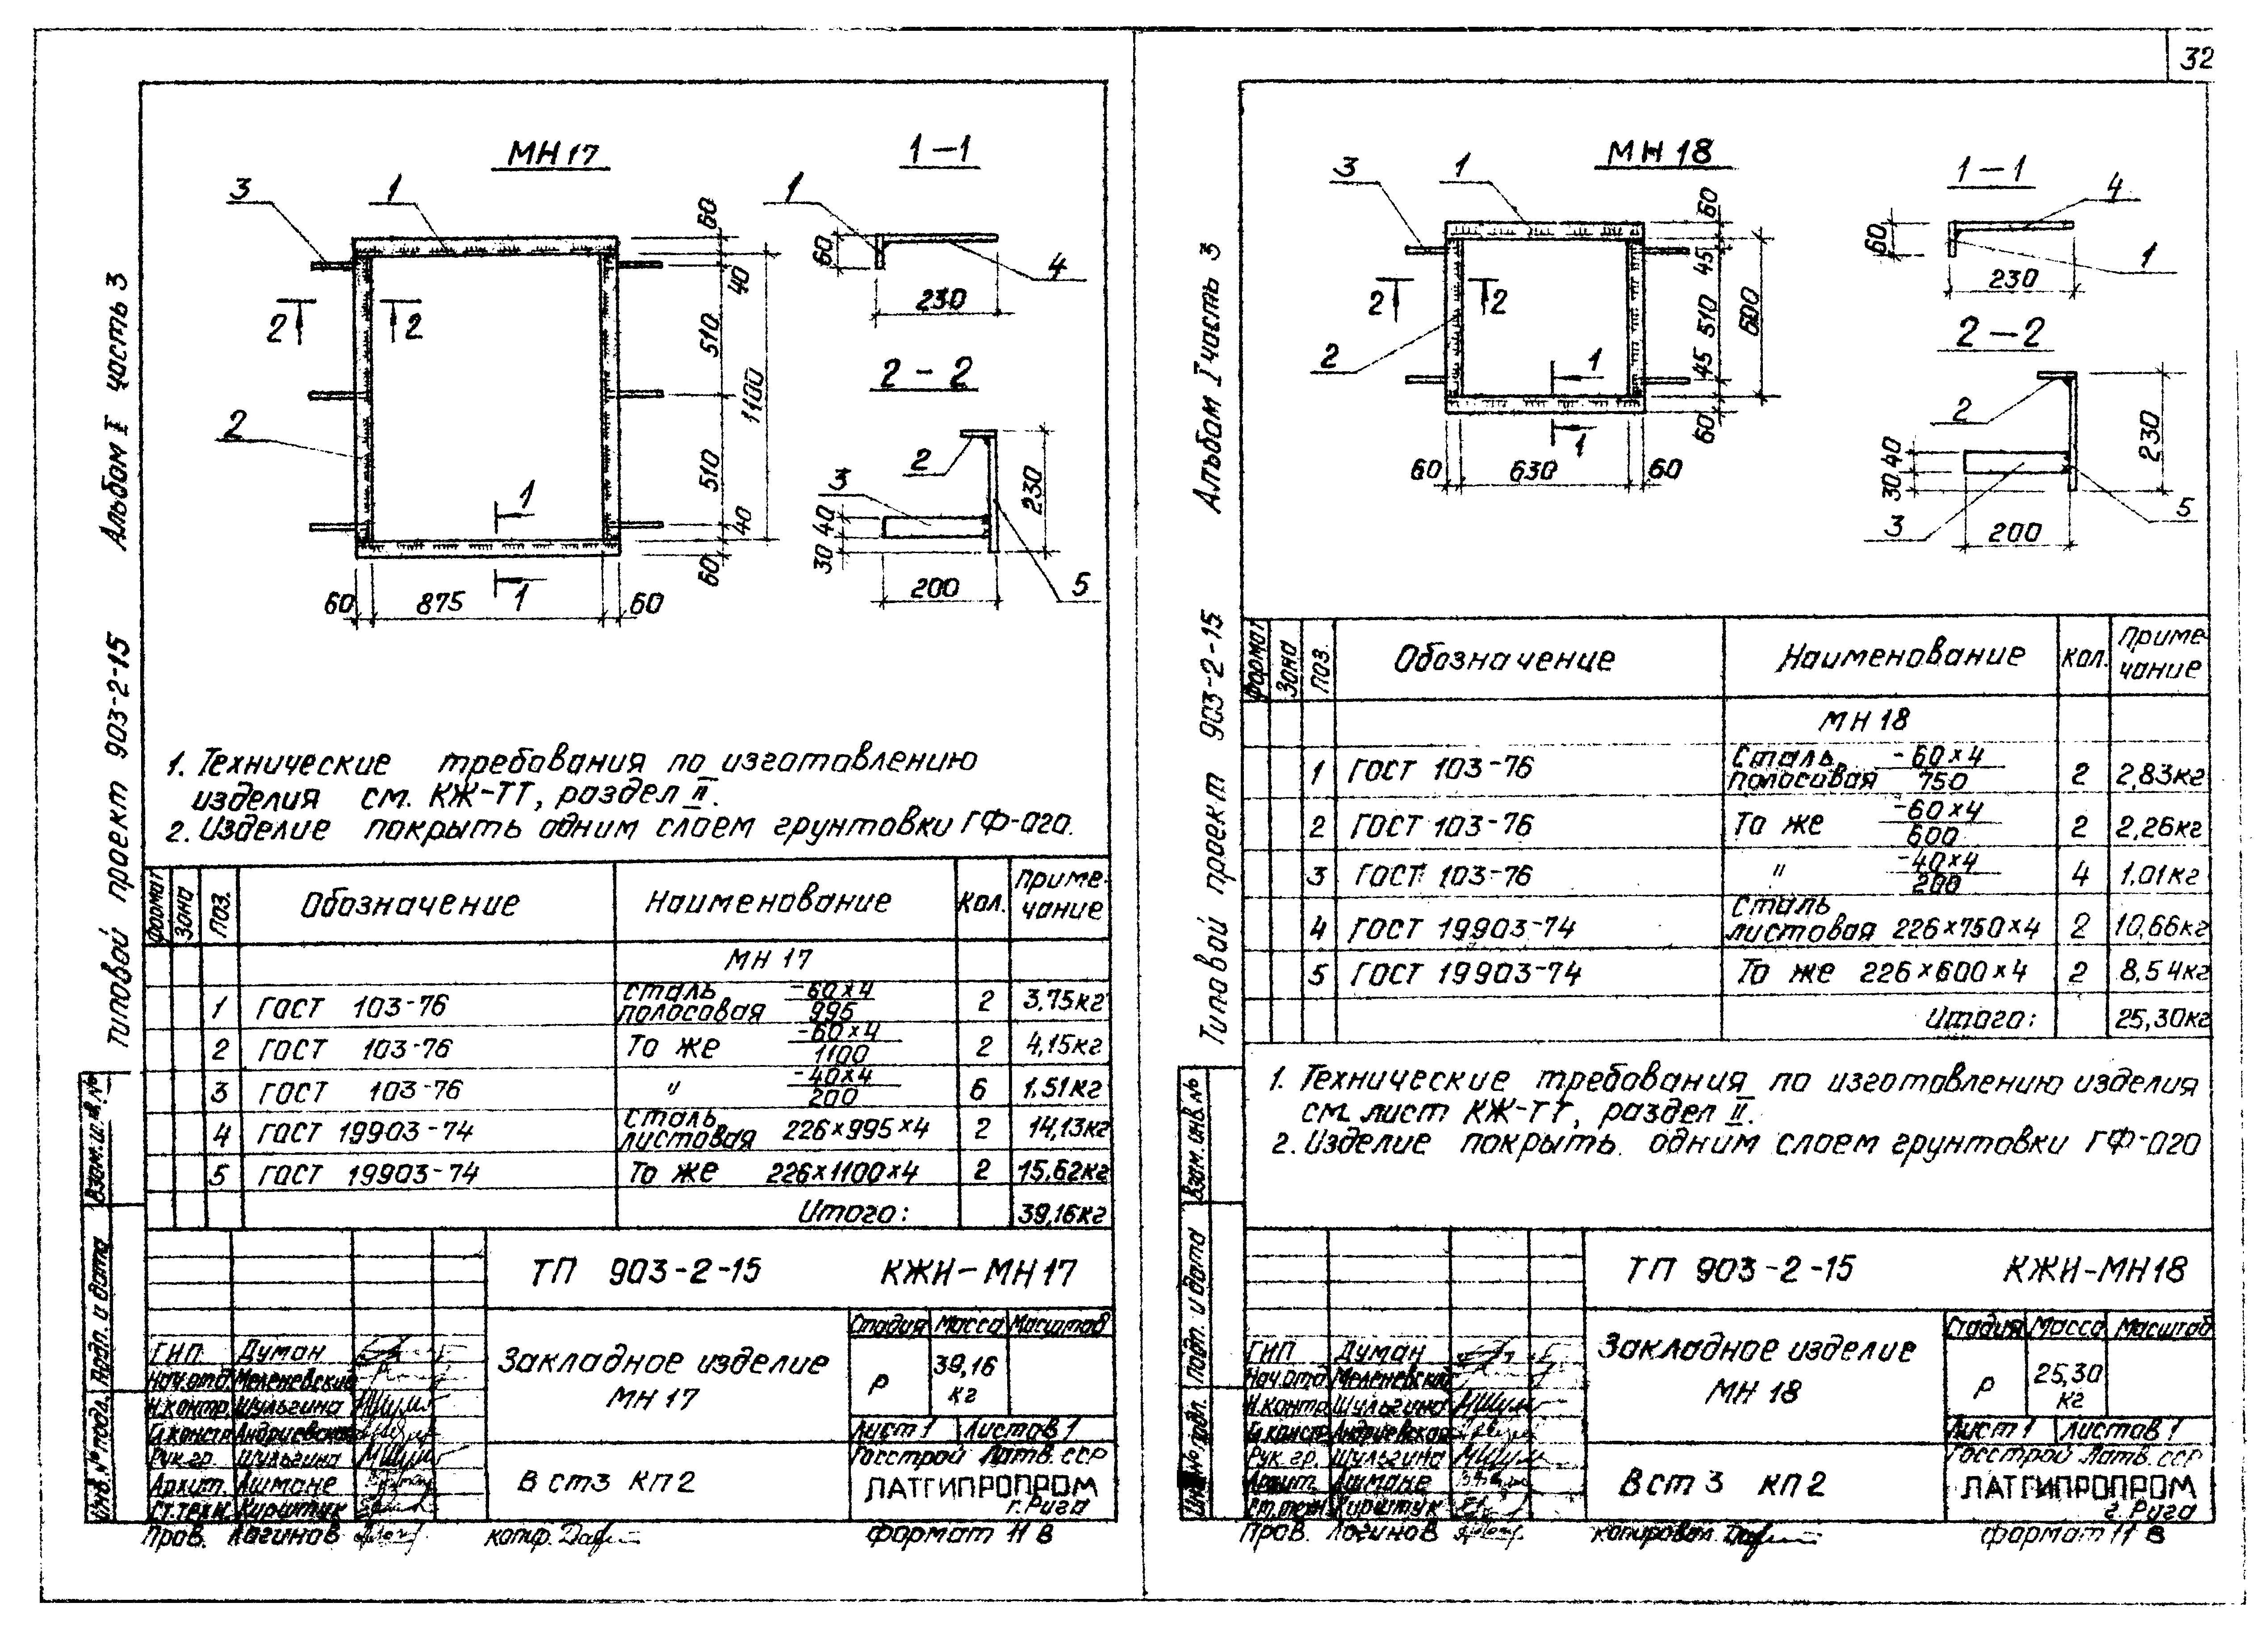 32
Альбом I часть 3
Типовой проект 903-2-15
МН 17
1-1
3
1
1
60
60
4
230
40
2
2
510
1100
2-2
2
2
3
230
510
1
40
30
40
60
1
200
5
60
875
60
1. Технические требования по изготовлению
изделия см. КЖ-ТТ, раздел II.
2. Изделие покрыть одним слоем грунтовки ГФ-020.
Формат Зона Поз. Обозначение Наименование Кол. Примечание
МН 17
1 ГОСТ 103-76 Сталь полосовая -60×4/995 2 3,75кг
2 ГОСТ 103-76 То же -60×4/1100 2 4,15кг
3 ГОСТ 103-76 " -40×4/200 6 1,51кг
4 ГОСТ 19903-74 Сталь листовая 226×995×4 2 14,13кг
5 ГОСТ 19903-74 То же 226×1100×4 2 15,62кг
Итого: 39,16кг
Взам. инв. №
Подп. и дата
Инв. № подл.
ТП 903-2-15 КЖИ-МН17
Закладное изделие
МН 17
Стадия Масса Масштаб
Р 39,16 кг
Лист 1 Листов 1
ГИП Думан
Нач.отд Меленевский
Н.контр. Шульгина
Гл.констр Андриевская
Рук.гр. Шульгина
Архит. Ашмане
Ст.техн. Кирштук
Пров. Логинов
В ст3 кп2
Госстрой Латв.ССР
ЛАТГИПРОПРОМ
г. Рига
копир.
формат 11 в
Альбом I часть 3
Типовой проект 903-2-15
МН 18
1-1
3
1
60
4
60
1
230
45
2
2
510
600
2-2
2
1
45
2
230
60
1
40
30
3
5
200
60
630
60
Формат Зона Поз. Обозначение Наименование Кол. Примечание
МН 18
1 ГОСТ 103-76 Сталь полосовая -60×4/750 2 2,83кг
2 ГОСТ 103-76 То же -60×4/600 2 2,26кг
3 ГОСТ 103-76 " -40×4/200 4 1,01кг
4 ГОСТ 19903-74 Сталь листовая 226×750×4 2 10,66кг
5 ГОСТ 19903-74 То же 226×600×4 2 8,54кг
Итого: 25,30кг
1. Технические требования по изготовлению изделия
см. лист КЖ-ТТ, раздел II.
2. Изделие покрыть одним слоем грунтовки ГФ-020
Взам. инв. №
Подп. и дата
Инв. № подл.
ТП 903-2-15 КЖИ-МН18
Закладное изделие
МН 18
Стадия Масса Масштаб
Р 25,30 кг
Лист 1 Листов 1
ГИП Думан
Нач.отд Меленевский
Н.контр Шульгина
Гл.констр Андриевская
Рук.гр. Шульгина
Архит. Ашмане
Ст.техн Кирштук
Пров. Логинов
В ст 3 кп2
Госстрой Латв.ССР
ЛАТГИПРОПРОМ
г. Рига
копировал.
формат 11 в